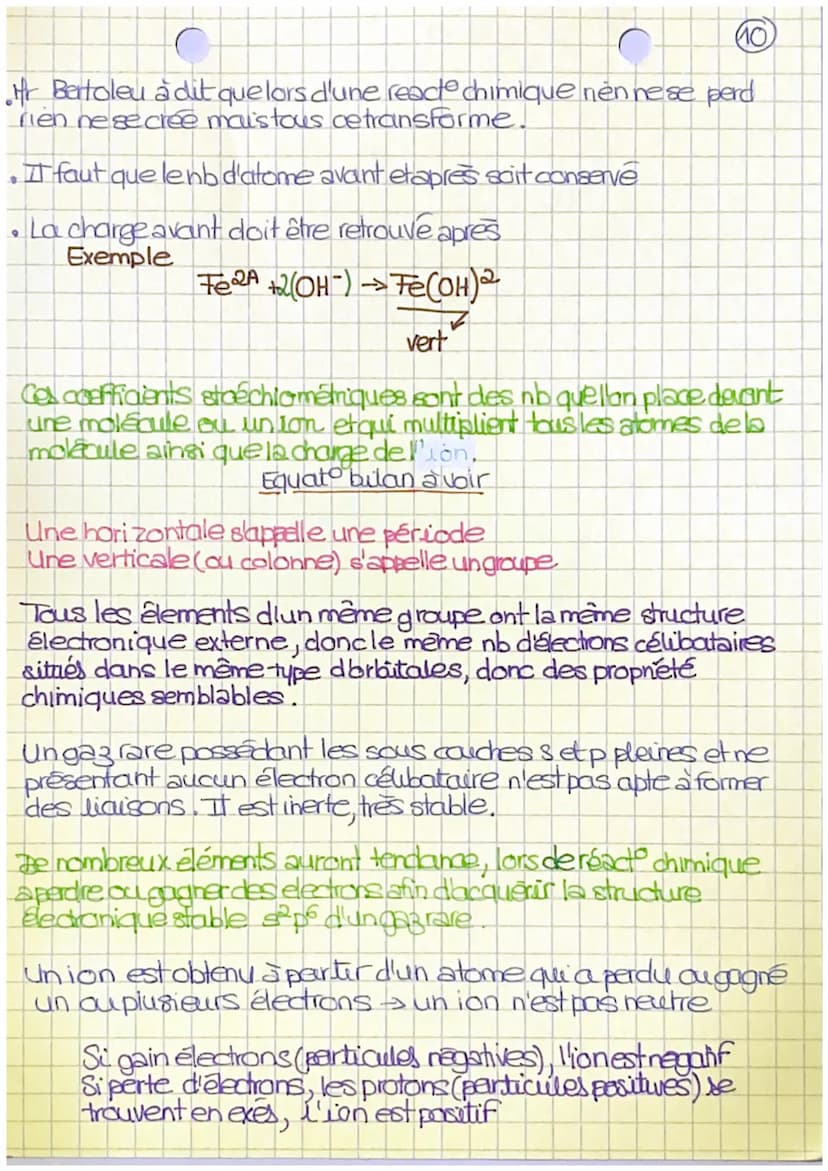 10
.Mr Bertoleu à dit que lors d'une réact° chimique rien ne se perd
rien ne se crée mais tous ce transforme.
. Il faut que le nb d'atome avant et après soit conservé
. La charge avant doit être retrouvé après
Exemple
Fe2A +2(OH-) → Fe(OH)2
vert
Ces coefficients stoéchiométriques sont des nb quellon place devant
une molécule ou un ion et qui multiplient tous les atomes de la
molécule ainsi que la charge de l'ion.
Equat° bilan à voir
Une horizontale s'appelle une période
Une verticale (ou colonne) s'appelle un groupe
Tous les élements d'un même groupe ont la même structure
électronique externe, donc le même nb d'élections célibataires
situés dans le même type d'orbitales, donc des propriété
chimiques semblables.
Un gaz rare possédant les sous couches s et p pleines et ne
présentant aucun électron célibataire n'est pas apte à former
des liaisons. Il est inerte, très stable.
De nombreux éléments auront tendance, lors de réact° chimique
à perdre ou gagner des electrons afin d'acquérir la structure
électronique stable s²p⁶ d'un gaz rare.
Un ion est obtenu à partir d'un atome qui a perdu ou gagné
un ou plusieurs électrons → un ion n'est pas neutre
Si gain électrons (particules négatives), l'ion est négatif
Si perte d'électrons, les protons (particules positives) se
trouvent en exés, l'ion est positif